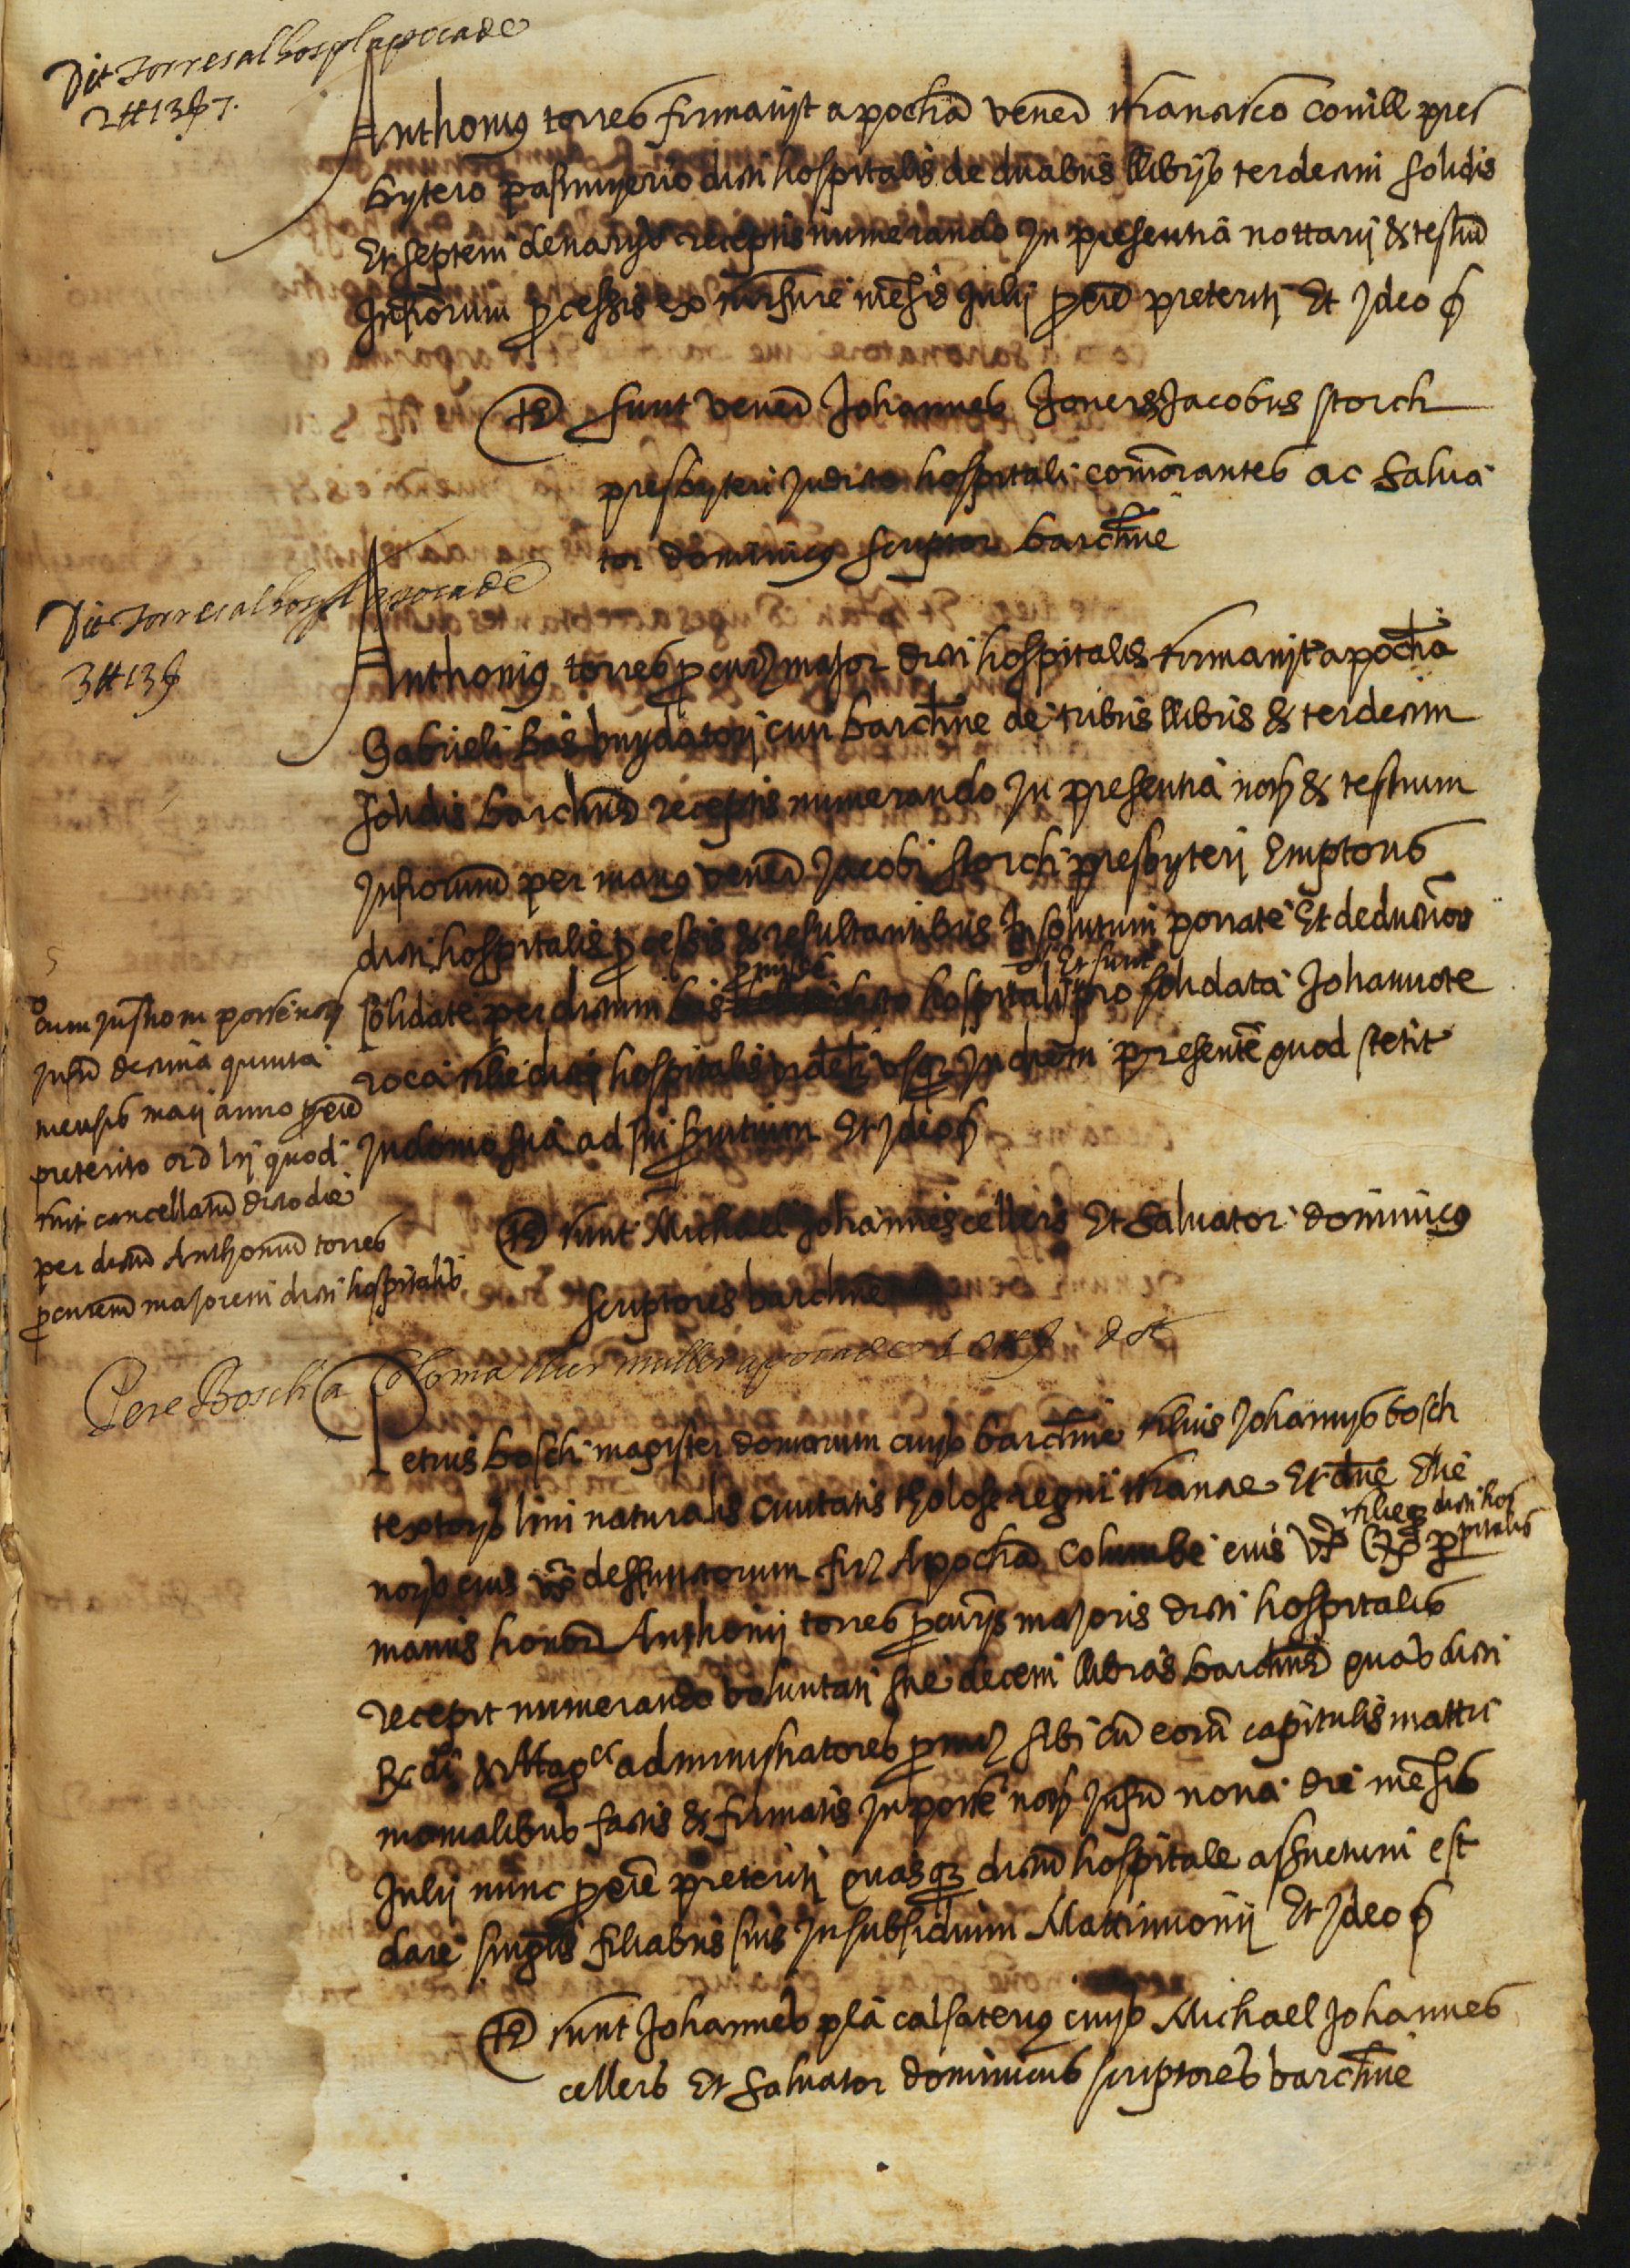 Dit Torres al hospl apoca de
2 tt 13 ß 7.
Anthonius torres firmavit apocham venerl Francisco conill pres
bytero dicti hospitalis de duabus llibris terdecim solidis
Et septem denariis receptis numerando In presentia nottarii & testium
Infrorum processis ex mensis Julii preteriti Et Ideo &
TS sunt venerl Johannes Joner & Jacobus storch
presbyteri In dicto hospitali comorantes ac Salva
tor dominicus scriptor barchne
Dit Torres al hospl apoca de
3 tt 13 ß
Anthonius torres procur major dicti hospitalis firmavit apocha
Gabrieli bas civi barchne de tribus llibris & terdecim
solidis barchne receptis numerando In presentia noti & testium
Infrorum per manus venerl Jacobi storch presbyteri Emptoris
dicti hospitalis processis & resultantibus In solutum porrate Et
solidate per dictum bas dicto hospitali pro solidata Johannote
roca filie dicti hospitalis usque In diem presentem quod stetit
In domo sua ad sui servitium Et Ideo &
cum Instrom posse noti
Infrm decima quinta
mensis maii anno
preterito quod
fuit cancellatum dicto die
per dictum Anthonium torres
procurem majorem dicti hospitalis
TS sunt Michael Johannes cellers Et Salvator dominicus
scriptores barchne
Pere Bosch a Coloma sa muller apoca de 10 tt
Petrus bosch magister domorum civis barchne filius Johannis bosch
textoris lini naturalis Civitatis tholose regni Francie Et dne
eius deffunctorum fir Apocham Columbe eius filieq dicti hos
pitalis
manus honorl Anthonii torres procuris majoris dicti hospitalis
recepit numerando voluntati sue decem llibras barchne quas dicti
Rdi & Magci administratores sibi cum eorum capitulis mattri
monialibus factis & firmatis In posse noti Infrm nona die mensis
Julii nunc preteriti quasq dictum hospitale assuetum est
dare singlis filiabus suis In subsidium Mattrimonii Et Ideo &
TS sunt Johannes pla calsaterius civis Michael Johannes
cellers Et Salvator dominicus scriptores barchne